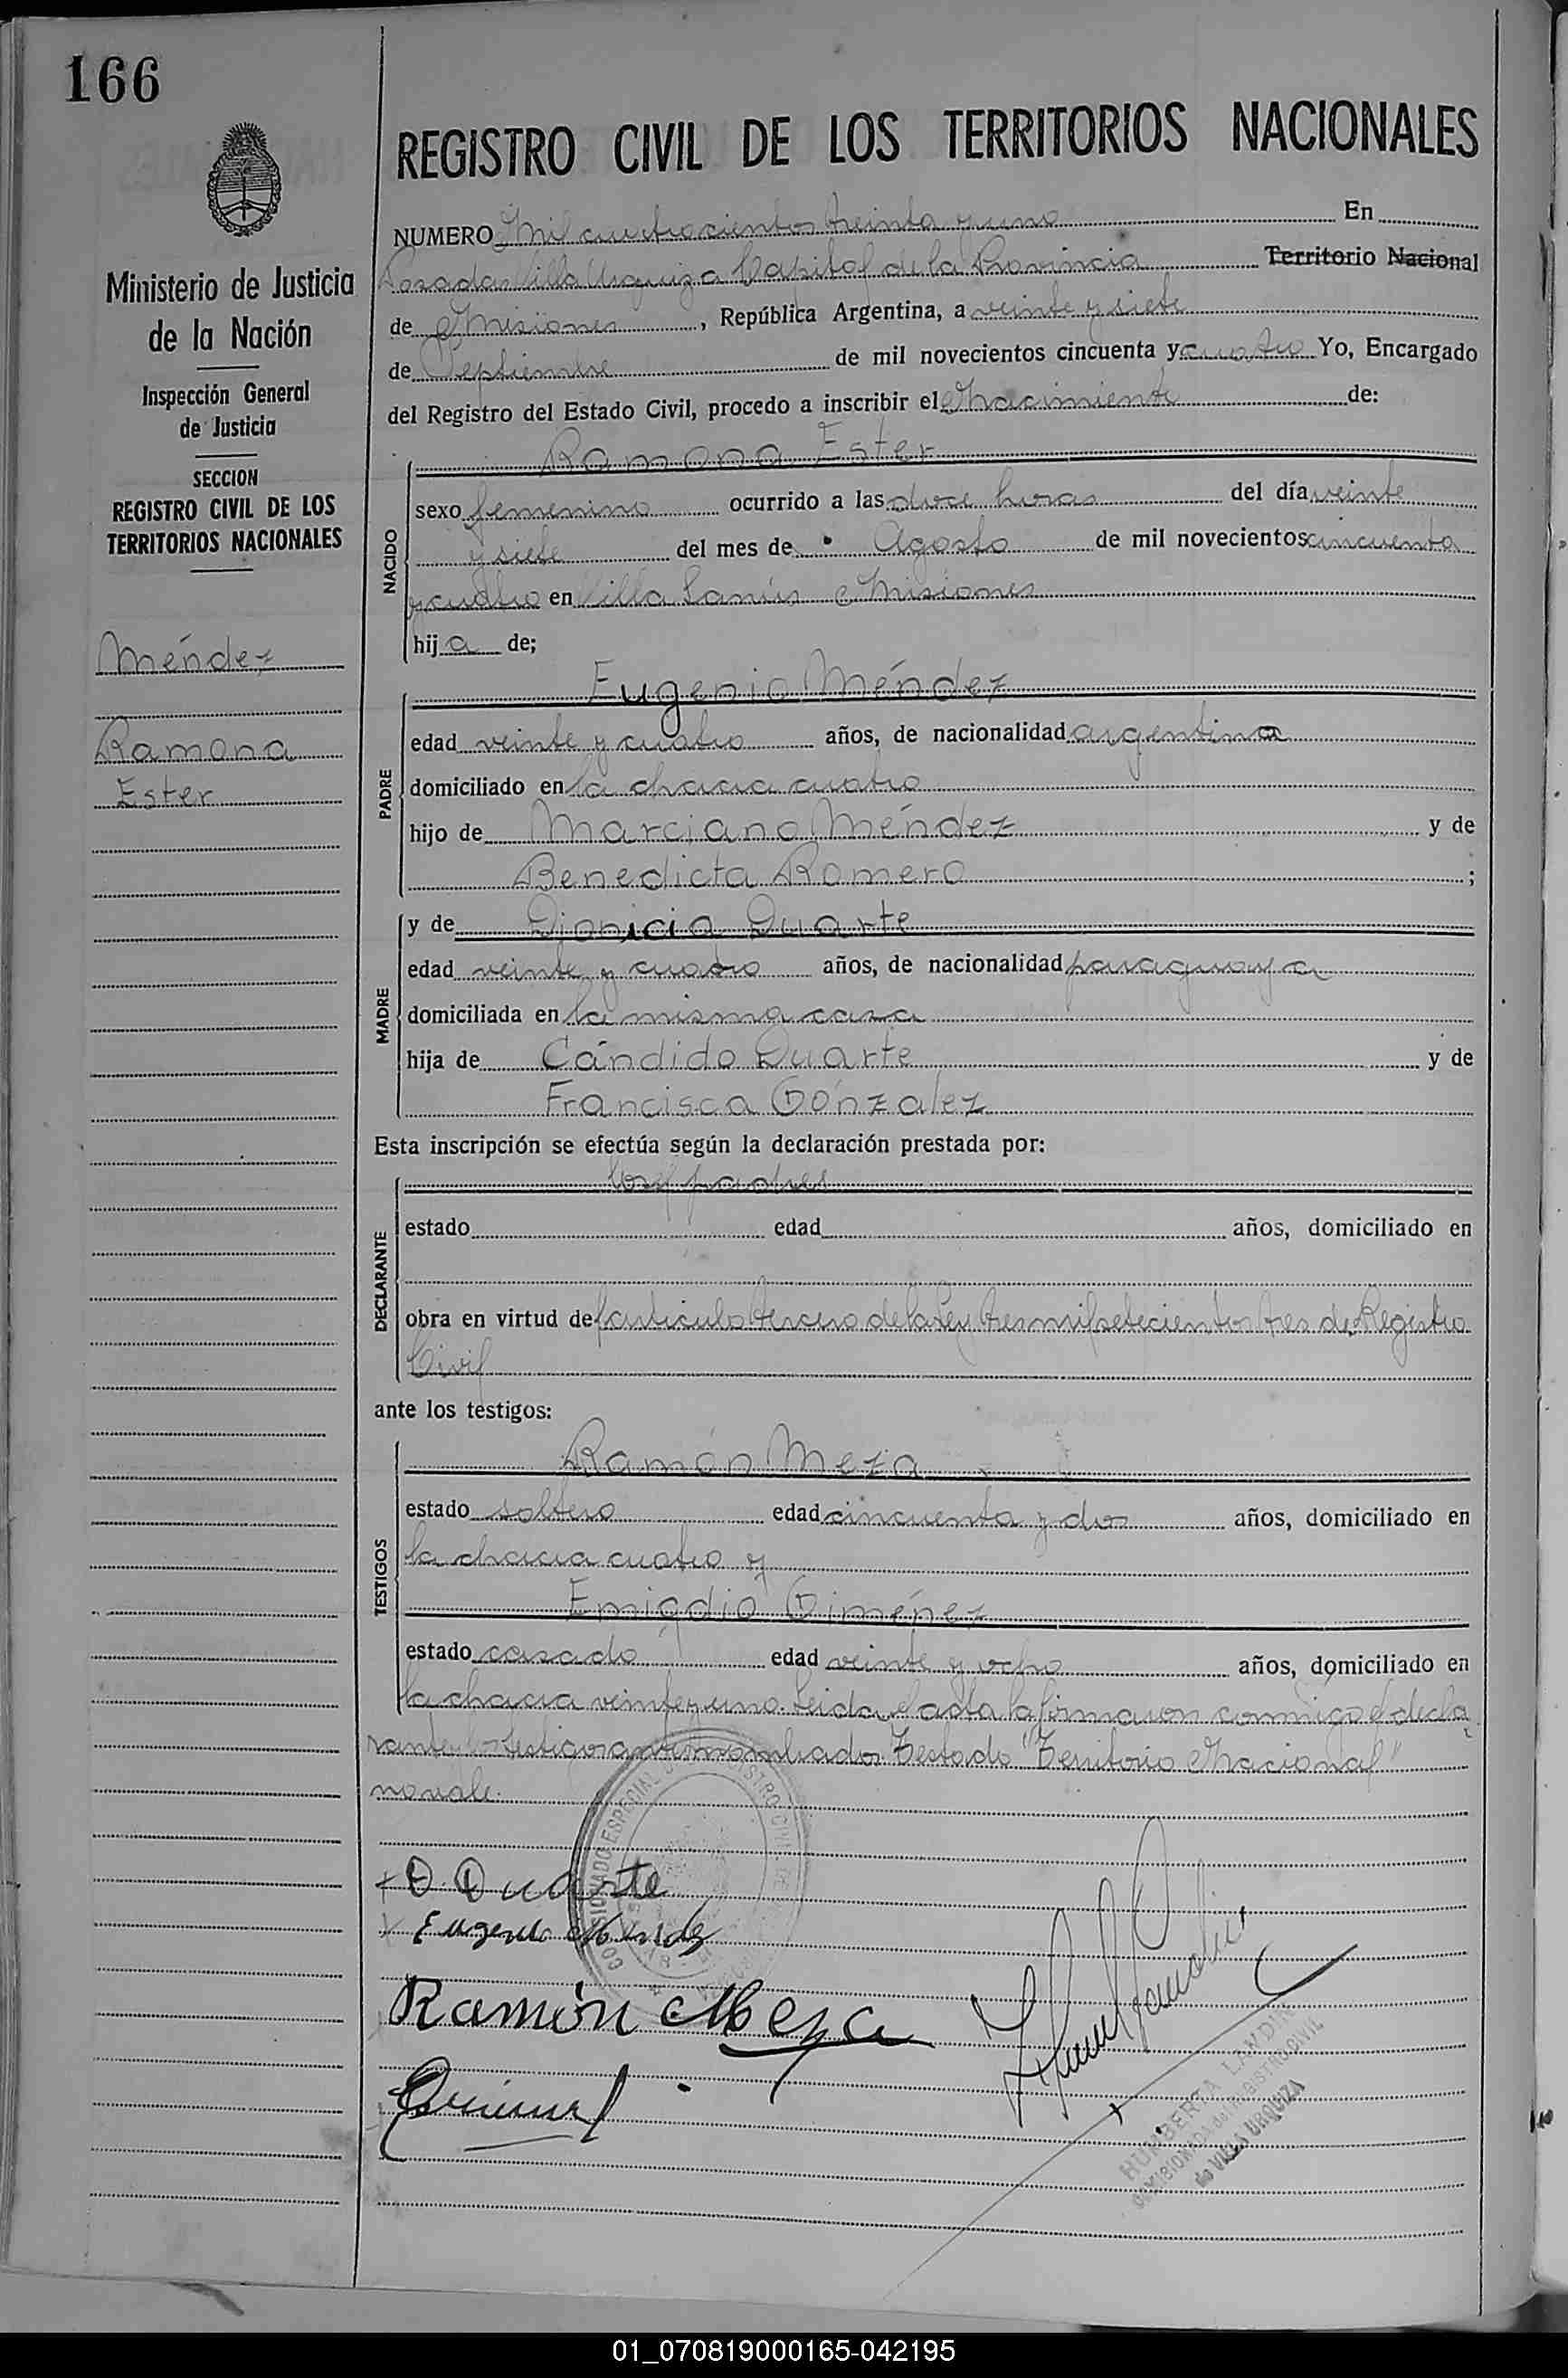 166
REGISTRO CIVIL DE LOS TERRITORIOS NACIONALES
Ministerio de Justicia
de la Nación
Inspección General
de Justicia
SECCION
REGISTRO CIVIL DE LOS
TERRITORIOS NACIONALES
Méndez
Ramona
Ester
NUMERO Mil cuatrocientos treinta y uno En
Posadas Villa Urquiza Capital de la Provincia Territorio Nacional
de Misiones, República Argentina, a veinte y siete
de Septiembre de mil novecientos cincuenta y cuatro Yo, Encargado
del Registro del Estado Civil, procedo a inscribir el Nacimiento de:
NACIDO
Ramona Ester
sexo femenino ocurrido a las doce horas del día veinte
y siete del mes de Agosto de mil novecientos cincuenta
y cuatro en Villa Lanús Misiones
hij a de;
PADRE
Eugenio Méndez
edad veinte y cuatro años, de nacionalidad argentina
domiciliado en la chacra cuatro
hijo de Marciano Méndez y de
Benedicta Romero ;
MADRE
y de Dionicia Duarte
edad veinte y cuatro años, de nacionalidad paraguaya
domiciliada en la misma casa
hija de Cándido Duarte y de
Francisca Gónzalez
Esta inscripción se efectúa según la declaración prestada por:
DECLARANTE
los padres
estado edad años, domiciliado en
obra en virtud del artículo tercero de la Ley tres mil setecientos tres de Registro
Civil
ante los testigos:
TESTIGOS
Ramón Meza
estado soltero edad cincuenta y dos años, domiciliado en
la chacra cuatro y
Emigdio Giménez
estado casado edad veinte y ocho años, domiciliado en
la chacra veinte y uno. Leida el acta la firmaron conmigo el decla
rante y los testigos antes nombrados. Testado "Territorio Nacional"
no vale.
D. Duarte
Eugenio Mendez
Ramón Meza
HUMBERTA LANDI
COMISIONADA del REGISTRO CIVIL
de VILLA URQUIZA
01_070819000165-042195